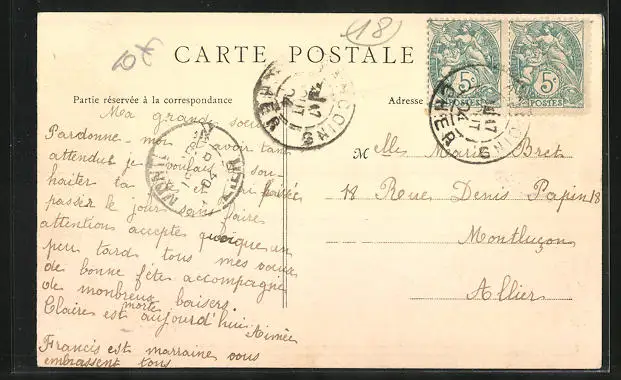 (18)
CARTE POSTALE
Partie réservée à la correspondance
Adresse
Ma grande soeur
Pardonne-moi avoir tant
attendu je voulais te sou-
haiter ta fête j'ai laissée
passer le jour sans faire
attentions accepte quoique un
peu tard tous mes voeux
de bonne fête accompagné
de nombreux baisers.
Claire est morte aujourd'hui
Aimée
Francis est marraine vous
embrassent tous
Melle Marie Bret
18 Rue Denis Papin 18
Montluçon
Allier
5c
POSTES
5c
POSTES
CHER
CHER